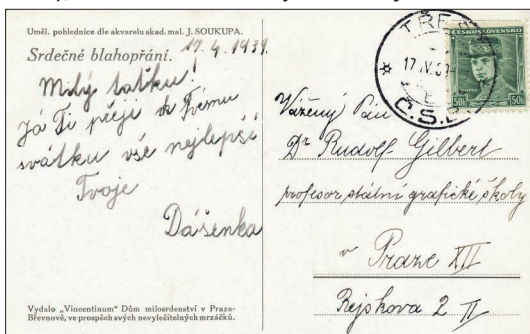 Uměl. pohlednice dle akvarelu akad. mal. J. SOUKUPA.
Srdečné blahopřání.
17. 4. 1939.
Milý taťku!
Já Ti přeji k Tvému
svátku vše nejlepší
Tvoje
Dášenka
Vydalo „Vincentinum" Dům milosrdenství v Praze-
Břevnově, ve prospěch svých nevyléčitelných mrzáčků.
TŘE
17 IV. 39
Č.S.
ČESKOSLOVENSKO
50h
50h
Vážený Pán
Dr Rudolf Gilbert
profesor státní grafické školy
v Praze XII
Rejskova 2 II